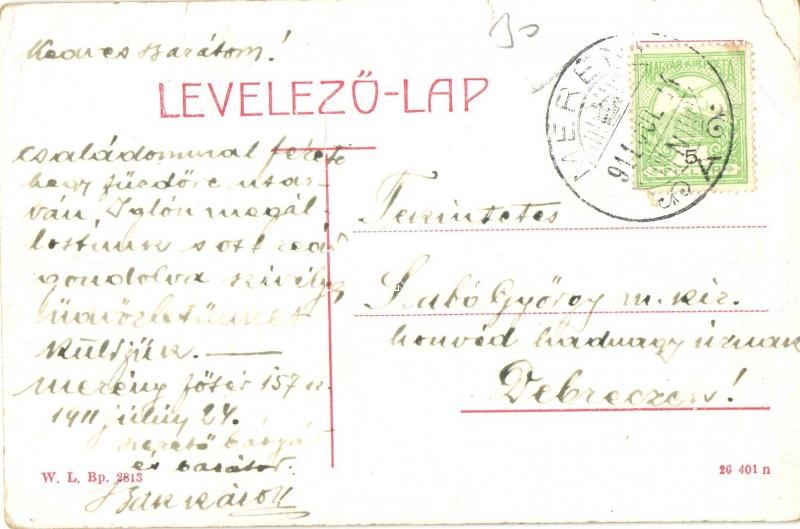 Kedves barátom!
LEVELEZŐ-LAP
családommal fekete
hegy fürdőre utaz-
ván, Iglón megál-
lottunk s ott reád
gondolva szívélyes
üdvözletünket
küldjük. —
Merény főtér 157 sz.
1911 július 24.
szerető bátyád
és barátod.
Bak Károly
W. L. Bp. 2813
30
MERÉNY
911 JUL
MAGYAR KIR. POSTA
5
Tekintetes
Szabó György m. kir.
honvéd hadnagy úrnak
Debreczen!
26 401 n